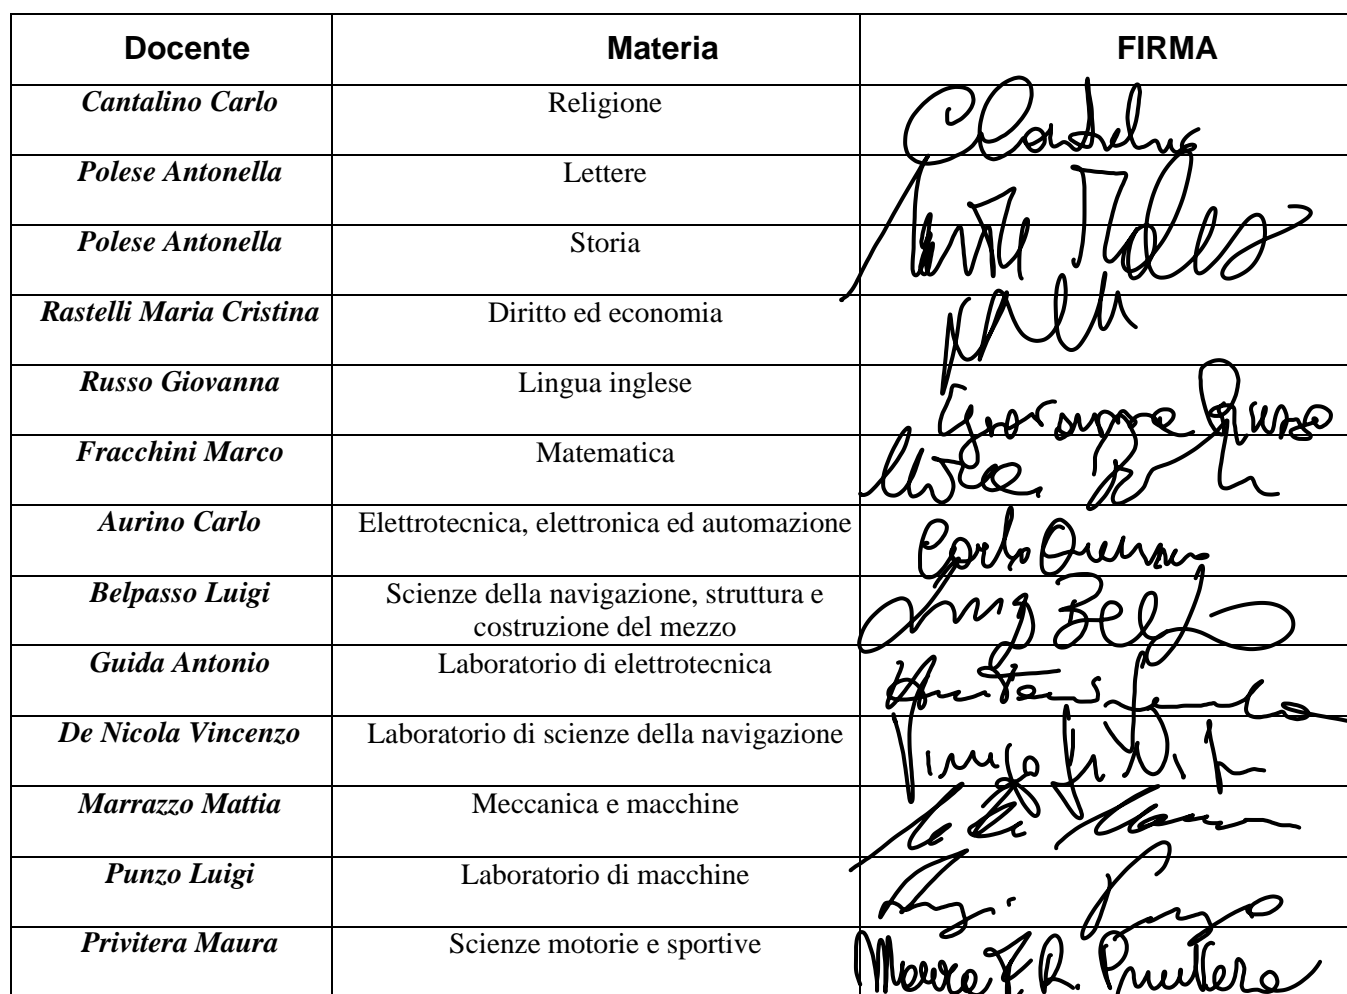 Docente Materia FIRMA
Cantalino Carlo Religione
Polese Antonella Lettere
Polese Antonella Storia
Rastelli Maria Cristina Diritto ed economia
Russo Giovanna Lingua inglese
Fracchini Marco Matematica
Aurino Carlo Elettrotecnica, elettronica ed automazione
Belpasso Luigi Scienze della navigazione, struttura e
costruzione del mezzo
Guida Antonio Laboratorio di elettrotecnica
De Nicola Vincenzo Laboratorio di scienze della navigazione
Marrazzo Mattia Meccanica e macchine
Punzo Luigi Laboratorio di macchine
Privitera Maura Scienze motorie e sportive